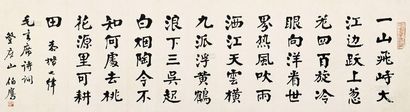 一山飛峙大
江边跃上葱
茏四百旋冷
眼向洋看世
界热风吹雨
洒江天雲横
九派浮黄鶴
浪下三吴起
白烟陶令不
知何處去桃
花源里可耕
田
毛主席诗词
登庐山 伯鹰